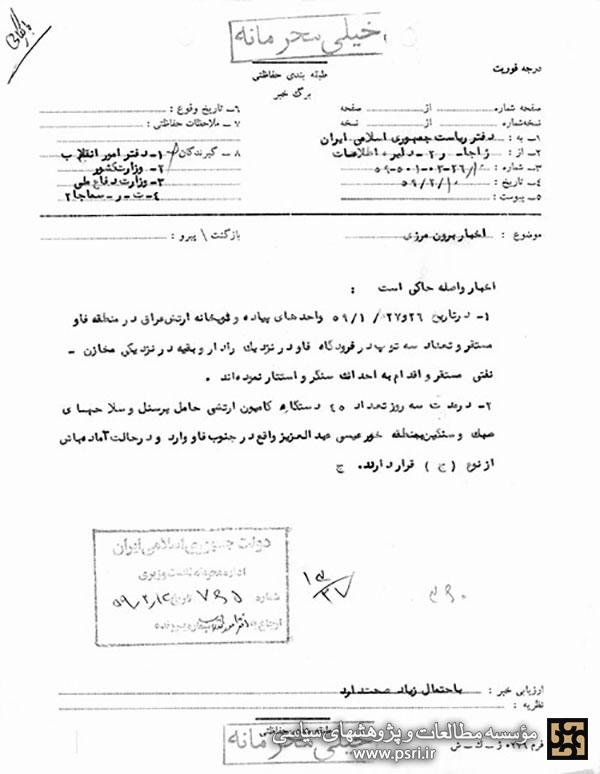 بایگانی
خیلی محرمانه
طبقه بندی حفاظتی
درجه فوریت
برگ خبر
صفحه شماره از صفحه
نسخه شماره از نسخه
۱- به : دفتر ریاست جمهوری اسلامی ایران
۲- از : ژاجا - ر۲ - دایره اطلاعات
۳- شماره :
۴- تاریخ : ۵۹/۲/۱۰
۵- پیوست :
۶- تاریخ وقوع :
۷- ملاحظات حفاظتی :
۸- گیرندگان ۱- دفتر امور انقلاب
۲- وزارت کشور
۳- وزارت دفاع ملی
۴- ت - ر - سماجا ۲
موضوع : اخبار برون مرزی
بازگشت \ پیرو :
اخبار واصله حاکی است :
۱- در تاریخ ۲۶ و ۲۷ / ۵۹/۱ واحدهای پیاده و توپخانه ارتش عراق در منطقه فاو
مستقر و تعداد سه توپ در فرودگاه فاو در نزدیک رادار و بقیه در نزدیکی مخازن -
نفتی مستقر و اقدام به احداث سنگر و استتار نموده اند .
۲- در مدت سه روز تعداد ۴۵ دستگاه کامیون ارتشی حامل پرسنل و سلاحهای
سبک و سنگین بمنطقه خور عیسی عبدالعزیز واقع در جنوب فاو وارد و در حالت آماده باش
از نوع (ج) قرار دارند. ج
دولت جمهوری اسلامی ایران
اداره محرمانه نخست وزیری
شماره ۷۶۵ تاریخ ۵۹/۲/۱۴
ارجاع به دفتر امور انقلاب شماره پرونده
۱۵/۳۷
۳۶۰
ارزیابی خبر : باحتمال زیاد صحت دارد
نظریه :
طبقه بندی حفاظتی
خیلی محرمانه
فرم ۰۲۷۶ ز - ك - ش
مؤسسه مطالعات و پژوهشهای سیاسی
www.psri.ir